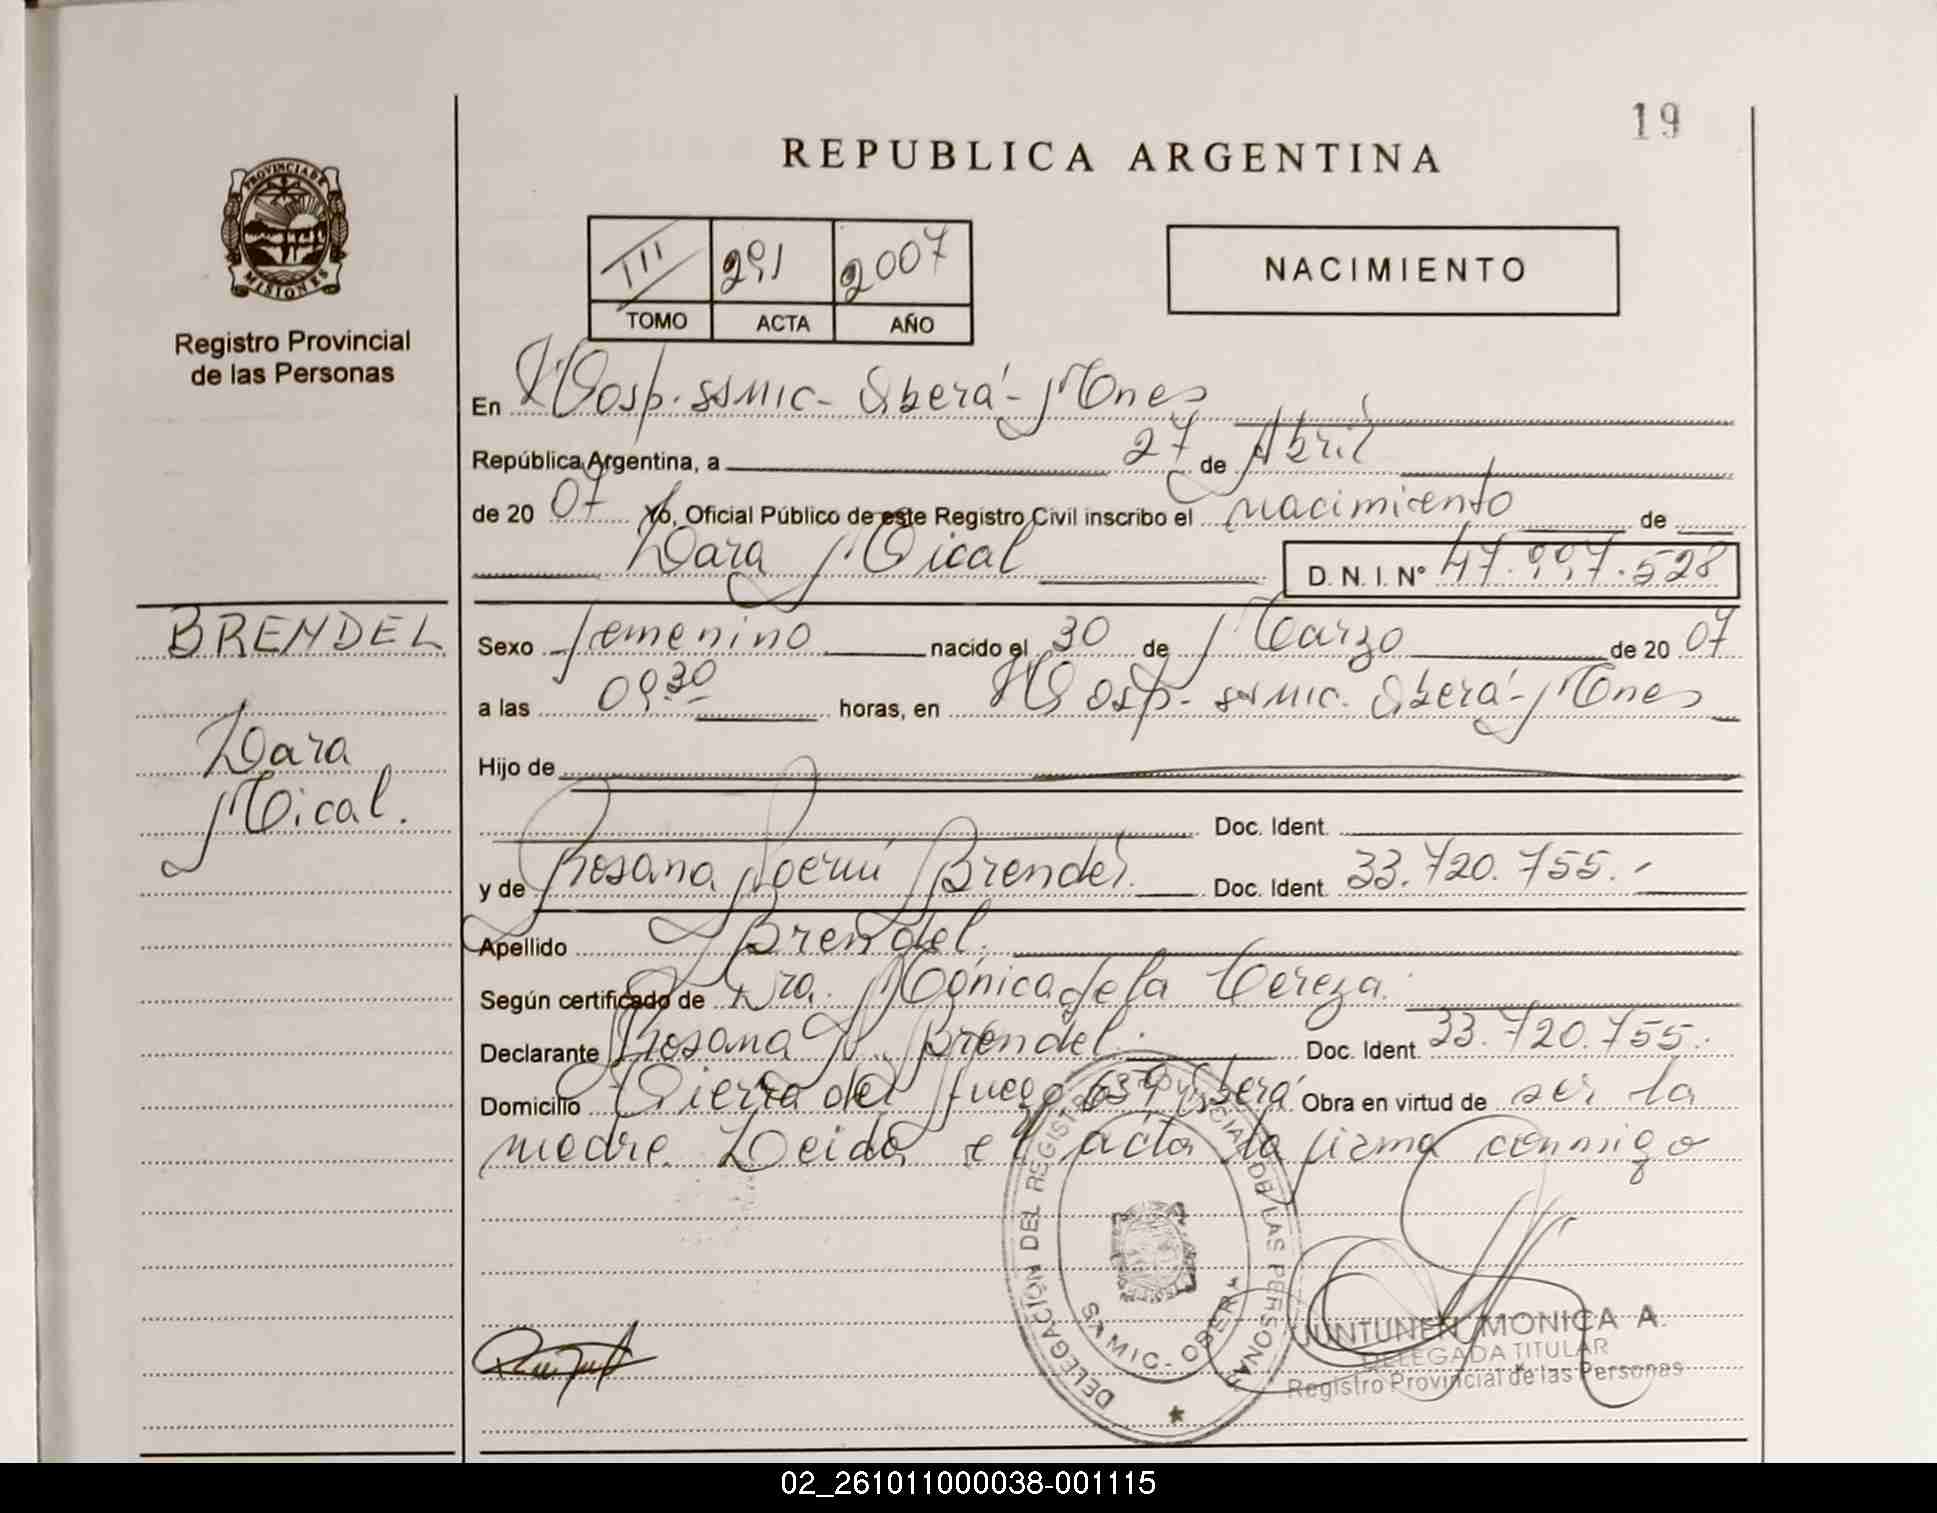 19
REPUBLICA ARGENTINA
PROVINCIA DE
MISIONES
Registro Provincial
de las Personas
III 291 2007
TOMO ACTA AÑO
NACIMIENTO
En Hosp. SSMIC - Oberá - Mnes
República Argentina, a 27 de Abril
de 20 07 Yo, Oficial Público de este Registro Civil inscribo el nacimiento de
Dara Mical D. N. I. Nº 47.997.528
BRENDEL
Dara
Mical.
Sexo femenino nacido el 30 de Marzo de 20 07
a las 09.30 horas, en Hosp. SSMIC. Oberá - Mnes
Hijo de
Doc. Ident.
y de Rosana Noemí Brendel. Doc. Ident. 33.720.755.-
Apellido Brendel.
Según certificado de Dra. Mónica de la Cereza.
Declarante Rosana N. Brendel. Doc. Ident. 33.720.755.
Domicilio Tierra del fuego 659 Oberá Obra en virtud de ser la
madre. Leida el acta la firma conmigo
DELEGACIÓN DEL REGISTRO PROVINCIAL DE LAS PERSONAS
SAMIC - OBERA
JUNTUNEN, MONICA A.
DELEGADA TITULAR
Registro Provincial de las Personas
02_261011000038-001115